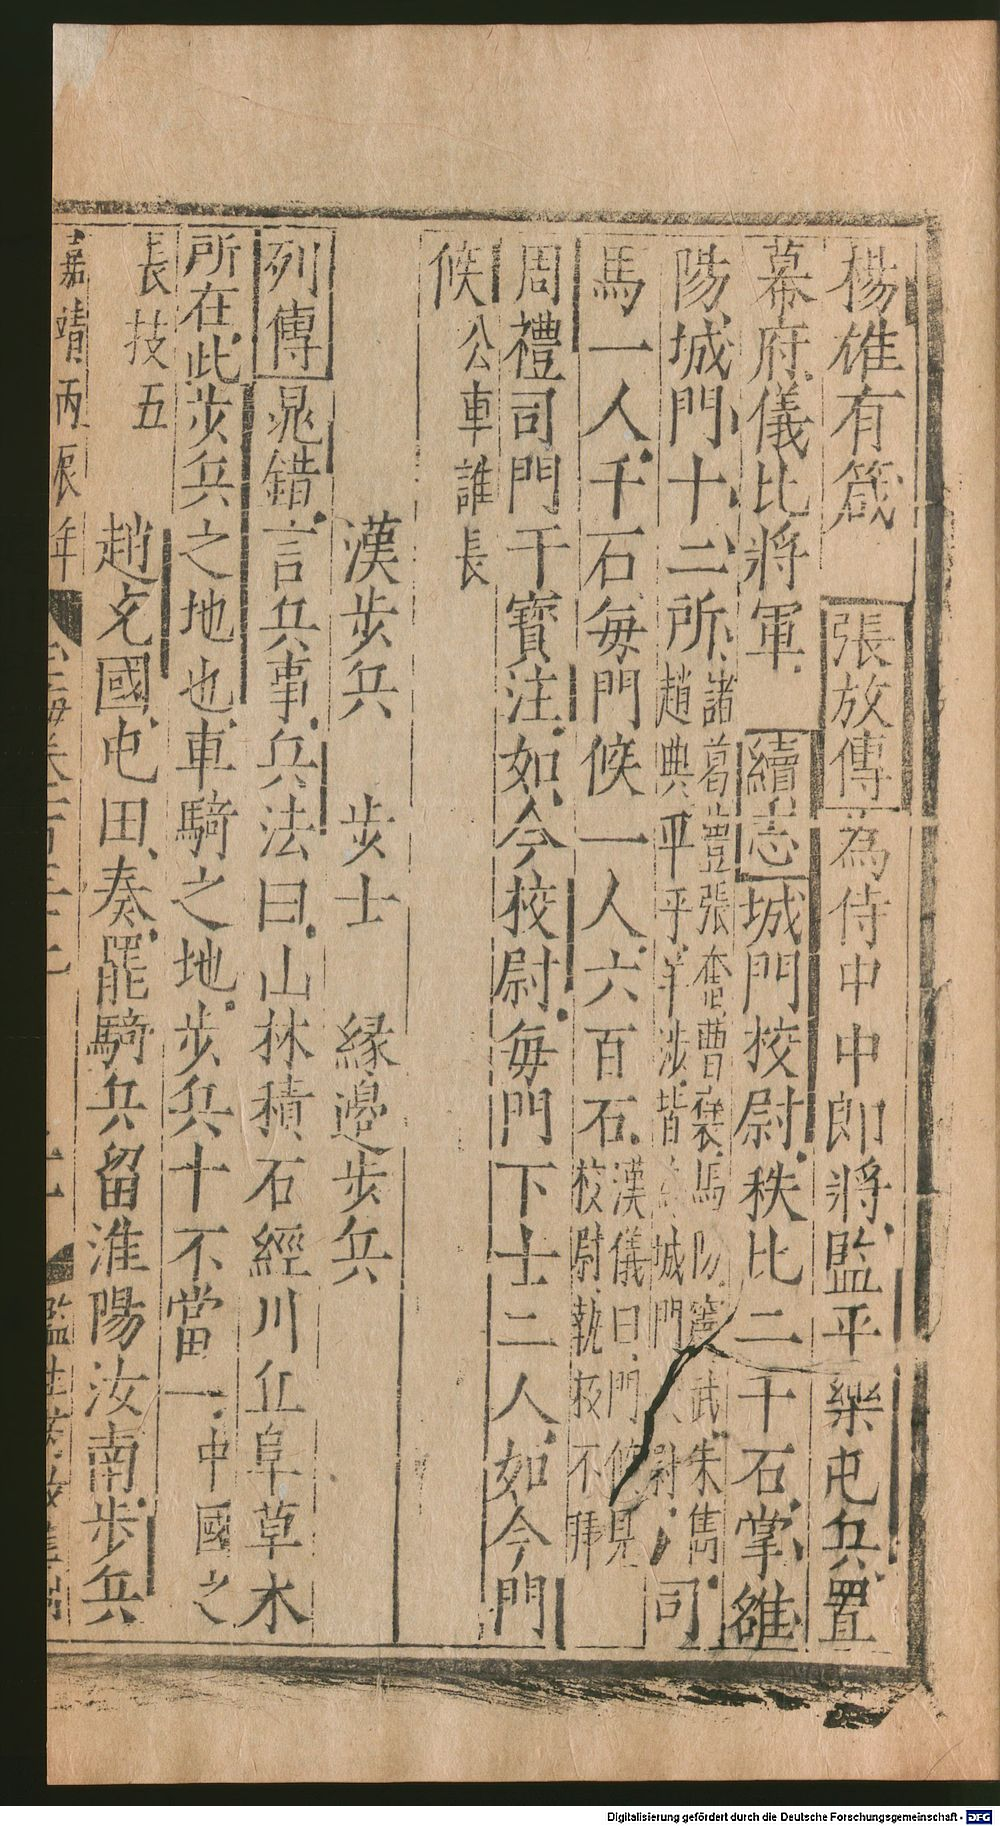 楊雄有箴 張放傳為侍中中郎將監平樂屯兵置
幕府儀比將軍 續志城門校尉秩比二千石掌雒
陽城門十二所諸葛豐張奮曹襃馬防竇武朱雋
趙典平羊涉皆城門尉司
馬一人千石每門候一人六百石漢儀曰門候見
校尉執板不拜
周禮司門干寶注如今校尉每門下士二人如今門
候公車誰長
漢步兵 步士 縁邊步兵
列傳晁錯言兵事兵法曰山林積石經川丘阜草木
所在此步兵之地也車騎之地步兵十不當一中國之
長技五
趙充國屯田奏罷騎兵留淮陽汝南步兵
嘉靖丙辰年
Digitalisierung gefördert durch die Deutsche Forschungsgemeinschaft - DFG